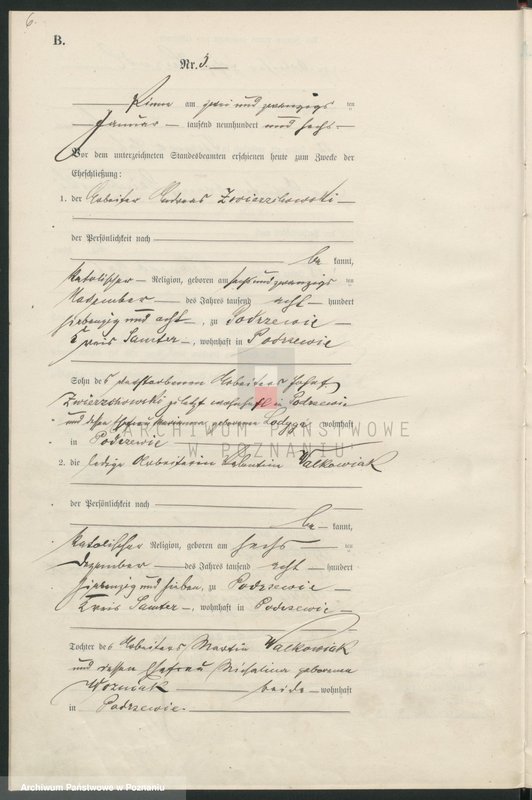 6.
B.
Nr. 3.
Pinne am zwei und zwanzigs ten
Januar tausend neunhundert und sechs
Vor dem unterzeichneten Standesbeamten erschienen heute zum Zwecke der
Eheschließung:
1. der Arbeiter Andreas Zwierzchowski
der Persönlichkeit nach
be kannt,
katolischer Religion, geboren am sechs und zwanzigs ten
November des Jahres tausend acht hundert
siebenzig und acht, zu Podrzewie
Kreis Samter, wohnhaft in Podrzewie
Sohn des verstorbenen Arbeiters
Zwierzchowski zuletzt wohnhaft in Podrzewie
und dessen Ehefrau Marianna geborenen Lodyga wohnhaft
in Podrzewie
ARCHIWUM PAŃSTWOWE
W POZNANIU
2. die ledige Arbeiterin Valentina Walkowiak
der Persönlichkeit nach
be kannt,
katolischer Religion, geboren am sechs ten
Dezember des Jahres tausend acht hundert
siebenzig und sieben, zu Podrzewie
Kreis Samter, wohnhaft in Podrzewie
Tochter des Arbeiters Martin Walkowiak
und dessen Ehefrau Michalina geborenen
Wozniak beide wohnhaft
in Podrzewie.
Archiwum Państwowe w Poznaniu